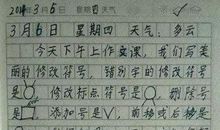 2014年3月6日 星期四天气
3月6日 星期四 天气：多云
今天下午上作文课，我们写美
丽的修改符号，错别字的修改符号
是 修改标点符号是 ，删除号
是 ，添加号是√，前移或后移是